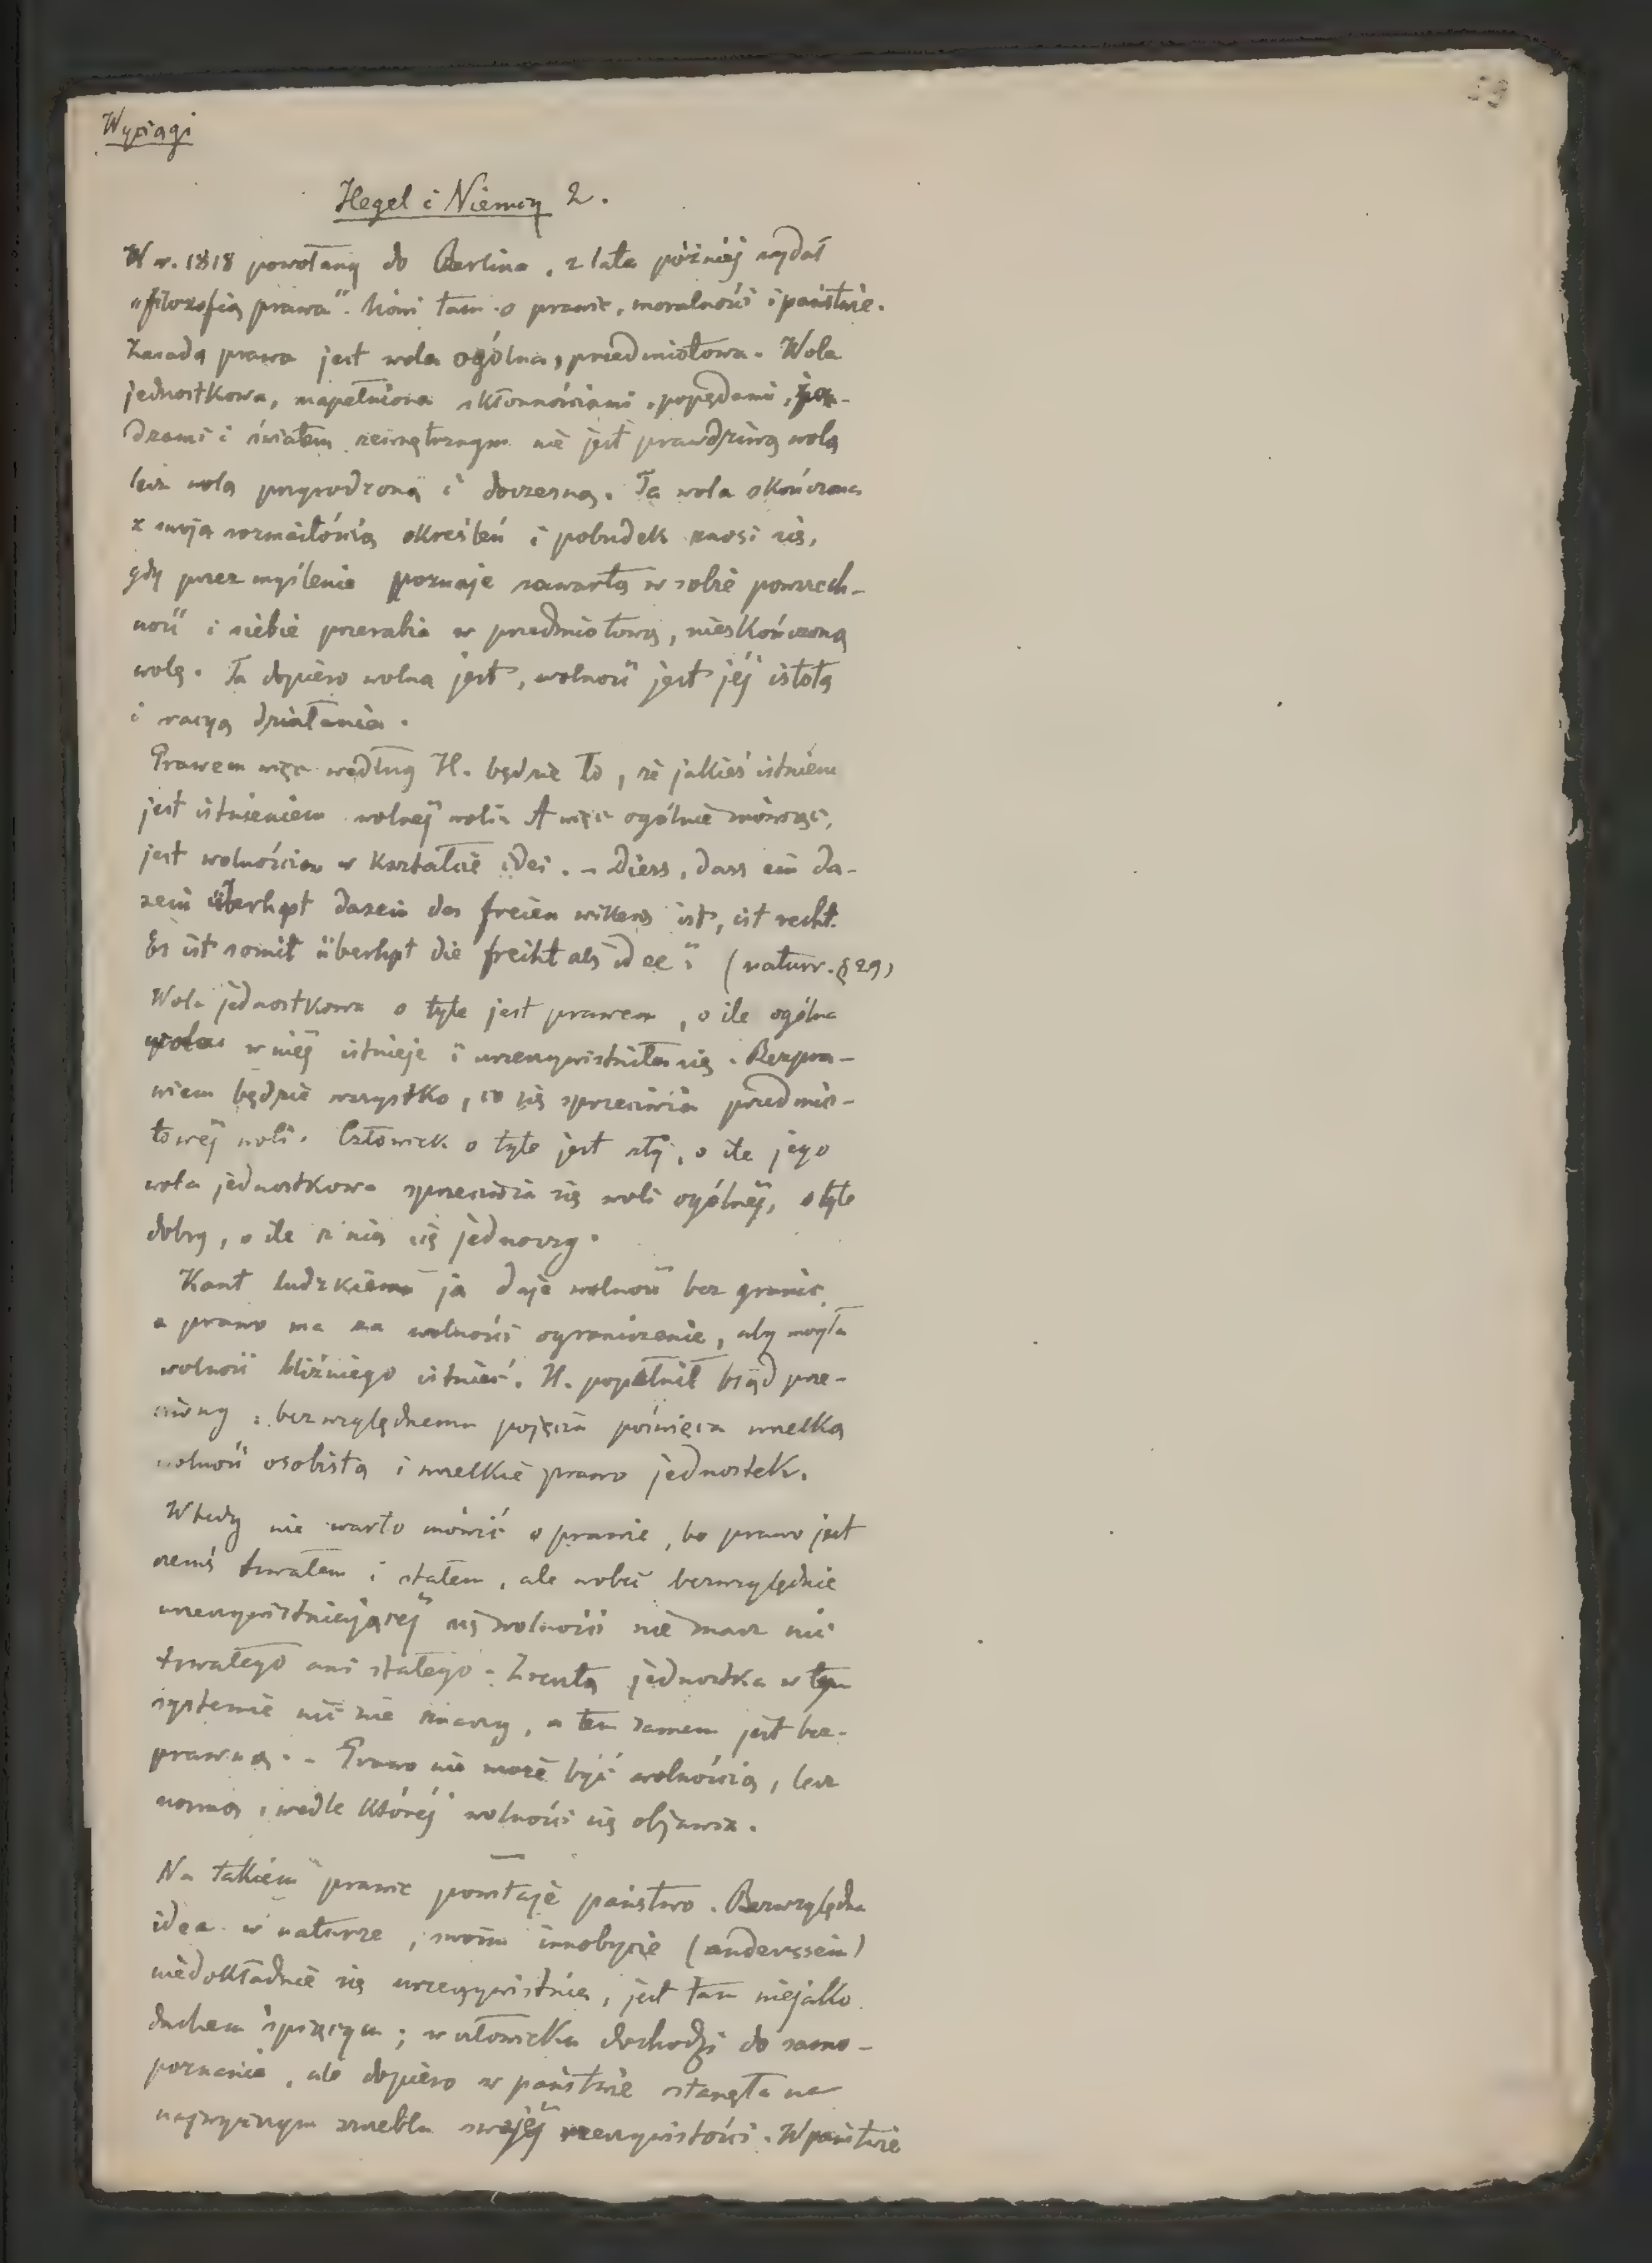 59
Wyciągi
Hegel i Niemcy 2.
W r. 1818 powołany do Berlina, 2 lata później wydał
„filozofią prawa". Mówi tam o prawie, moralności i państwie.
Zasadą prawa jest wola ogólna, przedmiotowa. Wola
jednostkowa, napełniona skłonnościami, popędami, żą-
dzami i światem zewnętrznym nie jest prawdziwą wolą
lecz wolą przyrodzoną i doczesną. Ta wola skończona
z swoją rozmaitością określeń i pobudek znosi się,
gdy przez myślenie poznaje zawartą w sobie powszech-
ność i siebie przerabia w przedmiotową, nieskończoną
wolę. Ta dopiero wolna jest, wolność jest jéj istotą
i racyą działania.
Prawem więc według H. będzie to, że jakieś istnienie
jest istnieniem wolnéj woli. A więc ogólnie mówiąc,
jest wolnością w kształcie idei. – Diess, dass ein da-
sein überhpt dasein des freien willens ist, ist recht.
Es ist somit überhpt die freiht als idee" (naturr. § 29)
Wola jednostkowa o tyle jest prawem, o ile ogólna
wola w niéj istnieje i urzeczywistniła się. Bezpra-
wiem będzie wszystko, co się sprzeciwia przedmio-
towéj woli. Człowiek o tyle jest zły, o ile jego
wola jednostkowa sprzeciwia się woli ogólnéj, o tyle
dobry, o ile z nią się jednoczy.
Kant ludzkiemu ja daje wolność bez granic,
a prawo ma za wolności ograniczenie, aby mogła
wolność bliźniego istnieć. H. popełnił błąd prze-
ciwny: bezwzględnemu pojęciu poświęca wszelką
wolność osobistą i wszelkie prawo jednostek.
Wtedy nie warto mówić o prawie, bo prawo jest
czemś trwałem i stałem, ale wobec bezwzględnie
urzeczywistniejącéj się wolności nie masz nic
trwałego ani stałego. Zresztą jednostka w tym
systemie nic nie znaczy, a tem samem jest bez-
prawną. – Prawo nie może być wolnością, lecz
normą, wedle któréj wolności się objawia.
Na takiém prawie powstaje państwo. Bezwzględna
idea w naturze, swoim innobycie (anderssein)
niedokładnie się urzeczywistnia, jest tam niejako
duchem śpiącym; w człowieku dochodzi do samo-
poznania, ale dopiero w państwie stanęła na
najwyższym szczeblu swojéj rzeczywistości. W państwie